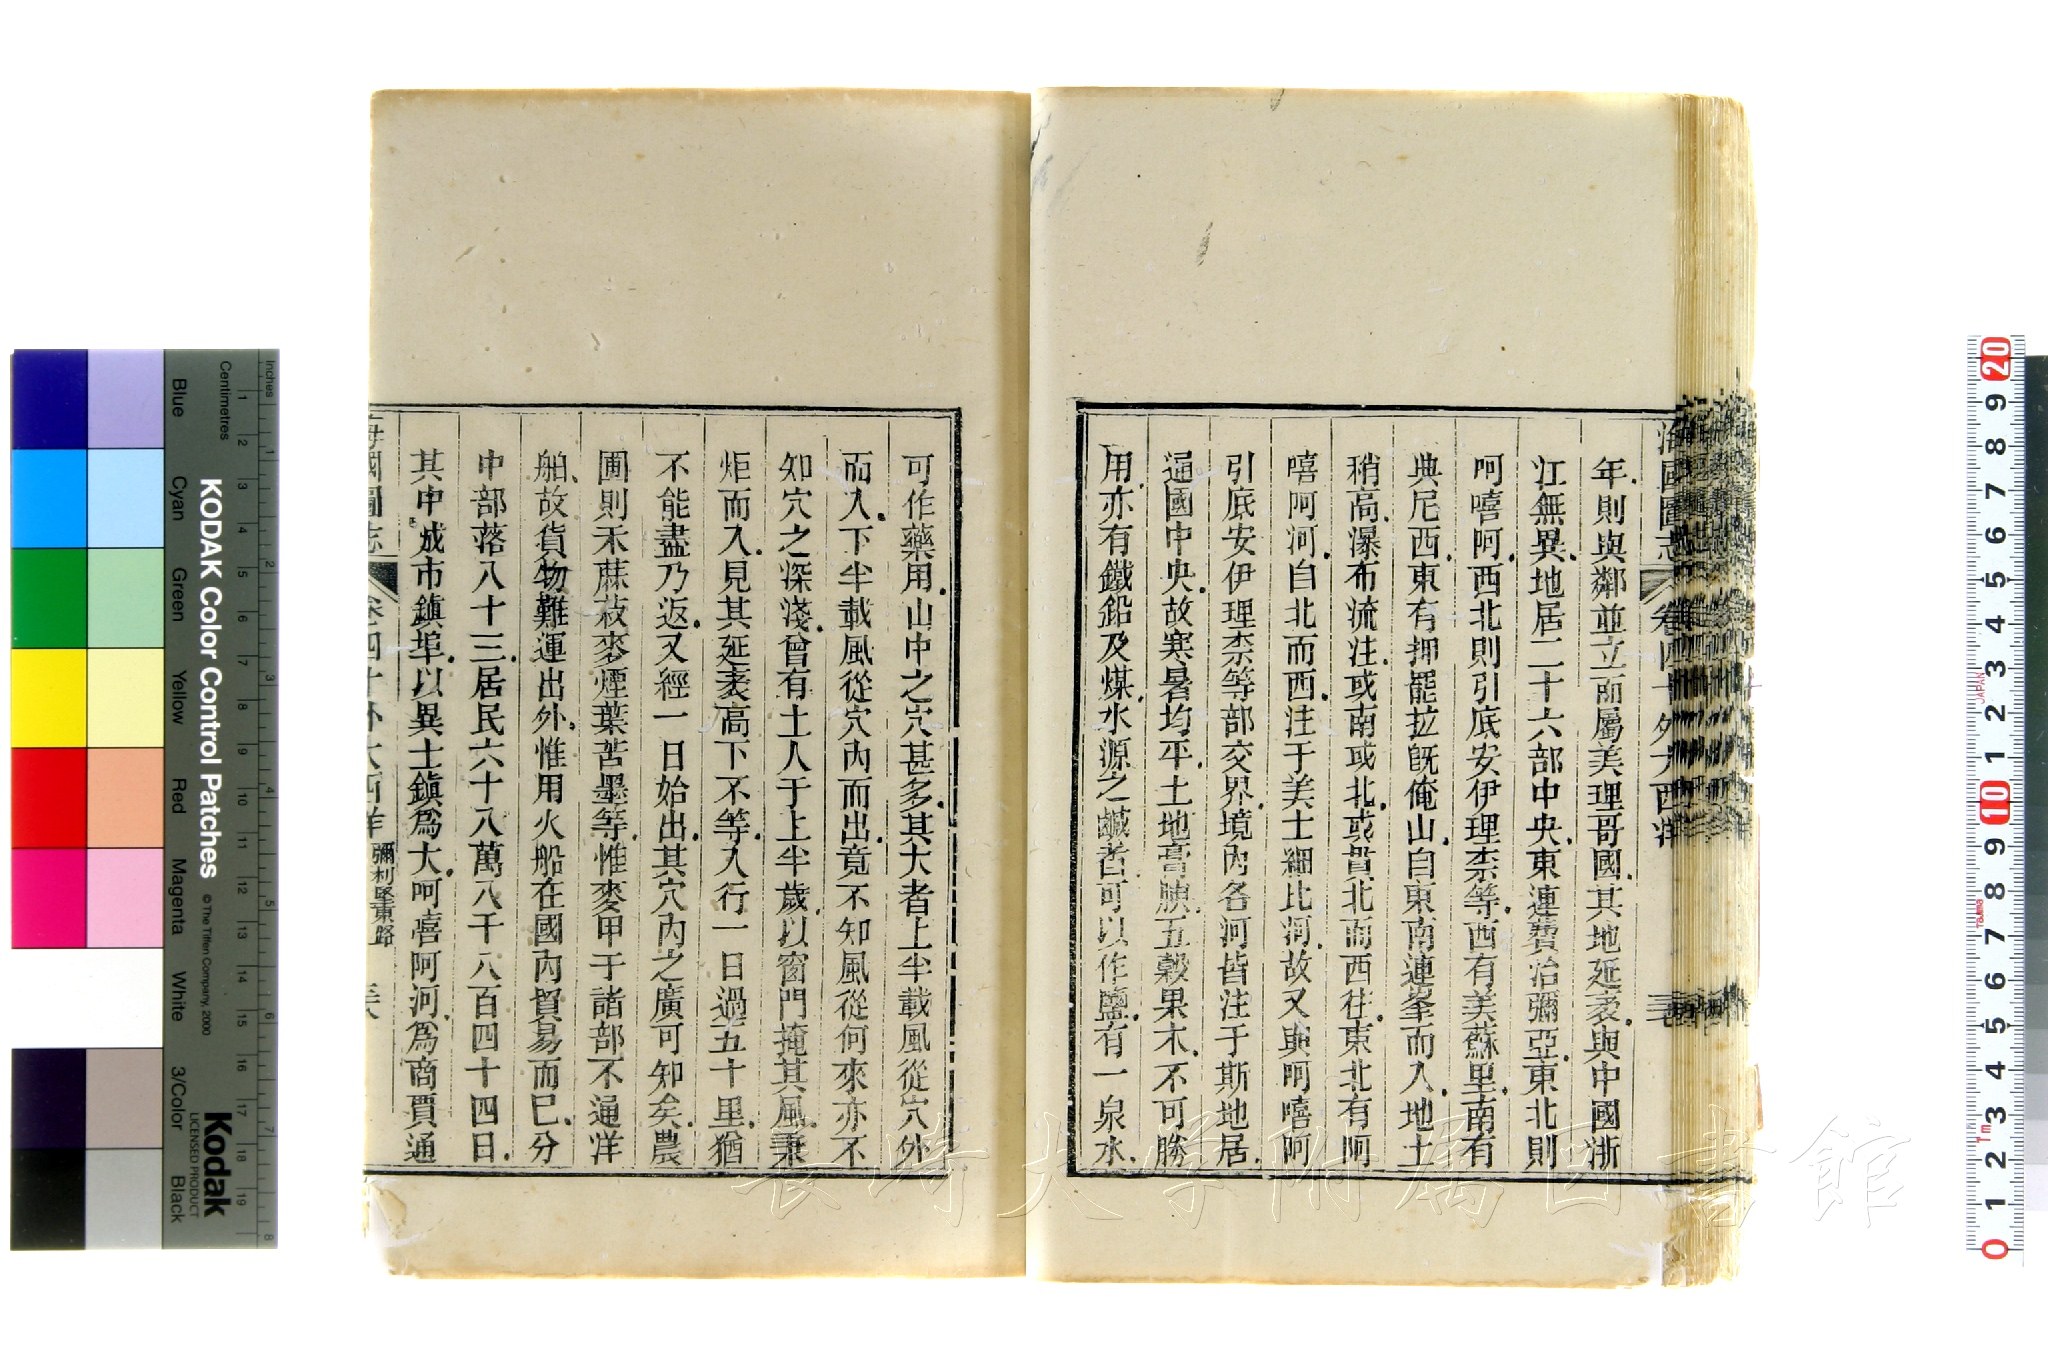 海國圖志 卷四十 外大西洋
年則與鄰並立而屬美理哥國其地延袤與中國浙
江無異地居二十六部中央東連費治彌亞東北則
呵嘻阿西北則引底安伊理柰等西有美蘇里南有
典尼西東有押罷拉既俺山自東南連峯而入地土
稍高瀑布流注或南或北或貫北而西往東北有阿
嘻阿河自北而西注于美士細比河故又與呵嘻阿
引底安伊理柰等部交界境內各河皆注于斯地居
通國中央故寒暑均平土地膏腴五穀果木不可勝
用亦有鐵鉛及煤水源之鹹者可以作鹽有一泉水
可作藥用山中之穴甚多其大者上半載風從穴外
而入下半載風從穴內而出竟不知風從何來亦不
知穴之深淺曾有土人于上半歲以窗門掩其風秉
炬而入見其延袤高下不等入行一日過五十里猶
不能盡乃返又經一日始出其穴內之廣可知矣農
圃則禾蔴菽麥煙葉苦墨等惟麥甲于諸部不通洋
舶故貨物難運出外惟用火船在國內貿易而已分
中部落八十三居民六十八萬八千八百四十四日
其中成市鎮埠以異士鎮為大呵嘻阿河為商賈通
海國圖志 卷四十 外大西洋 彌利堅東路 三六
KODAK Color Control Patches
© The Tiffen Company, 2000
Kodak
LICENSED PRODUCT
Inches
Centimetres
Blue
Cyan
Green
Yellow
Red
Magenta
White
3/Color
Black
長崎大学附属図書館
JAPAN